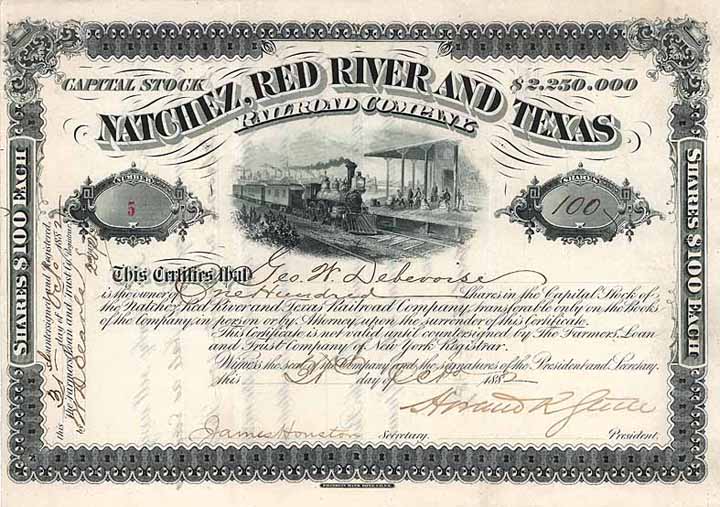 CAPITAL STOCK
$2.250.000
NATCHEZ, RED RIVER AND TEXAS
RAILROAD COMPANY.
NUMBER
5
SHARES
100
SHARES $100 EACH
SHARES $100 EACH
This Certifies that Geo. W. Debevoise
is the owner of One Hundred Shares in the Capital Stock of
the Natchez, Red River and Texas Railroad Company, transferable only on the books
of the Company, in person or by Attorney, upon the surrender of this Certificate.
This Certificate not valid until countersigned by The Farmers, Loan
and Trust Company of New York Registrar.
Witness the seal of the Company and the signatures of the President and Secretary.
this 31 day of Oct 1882
James Houston Secretary. President.
Countersigned and Registered,
this 31 day of Octo 1882
The Farmers Loan and Trust Co.
by
FRANKLIN BANK NOTE CO. N.Y.